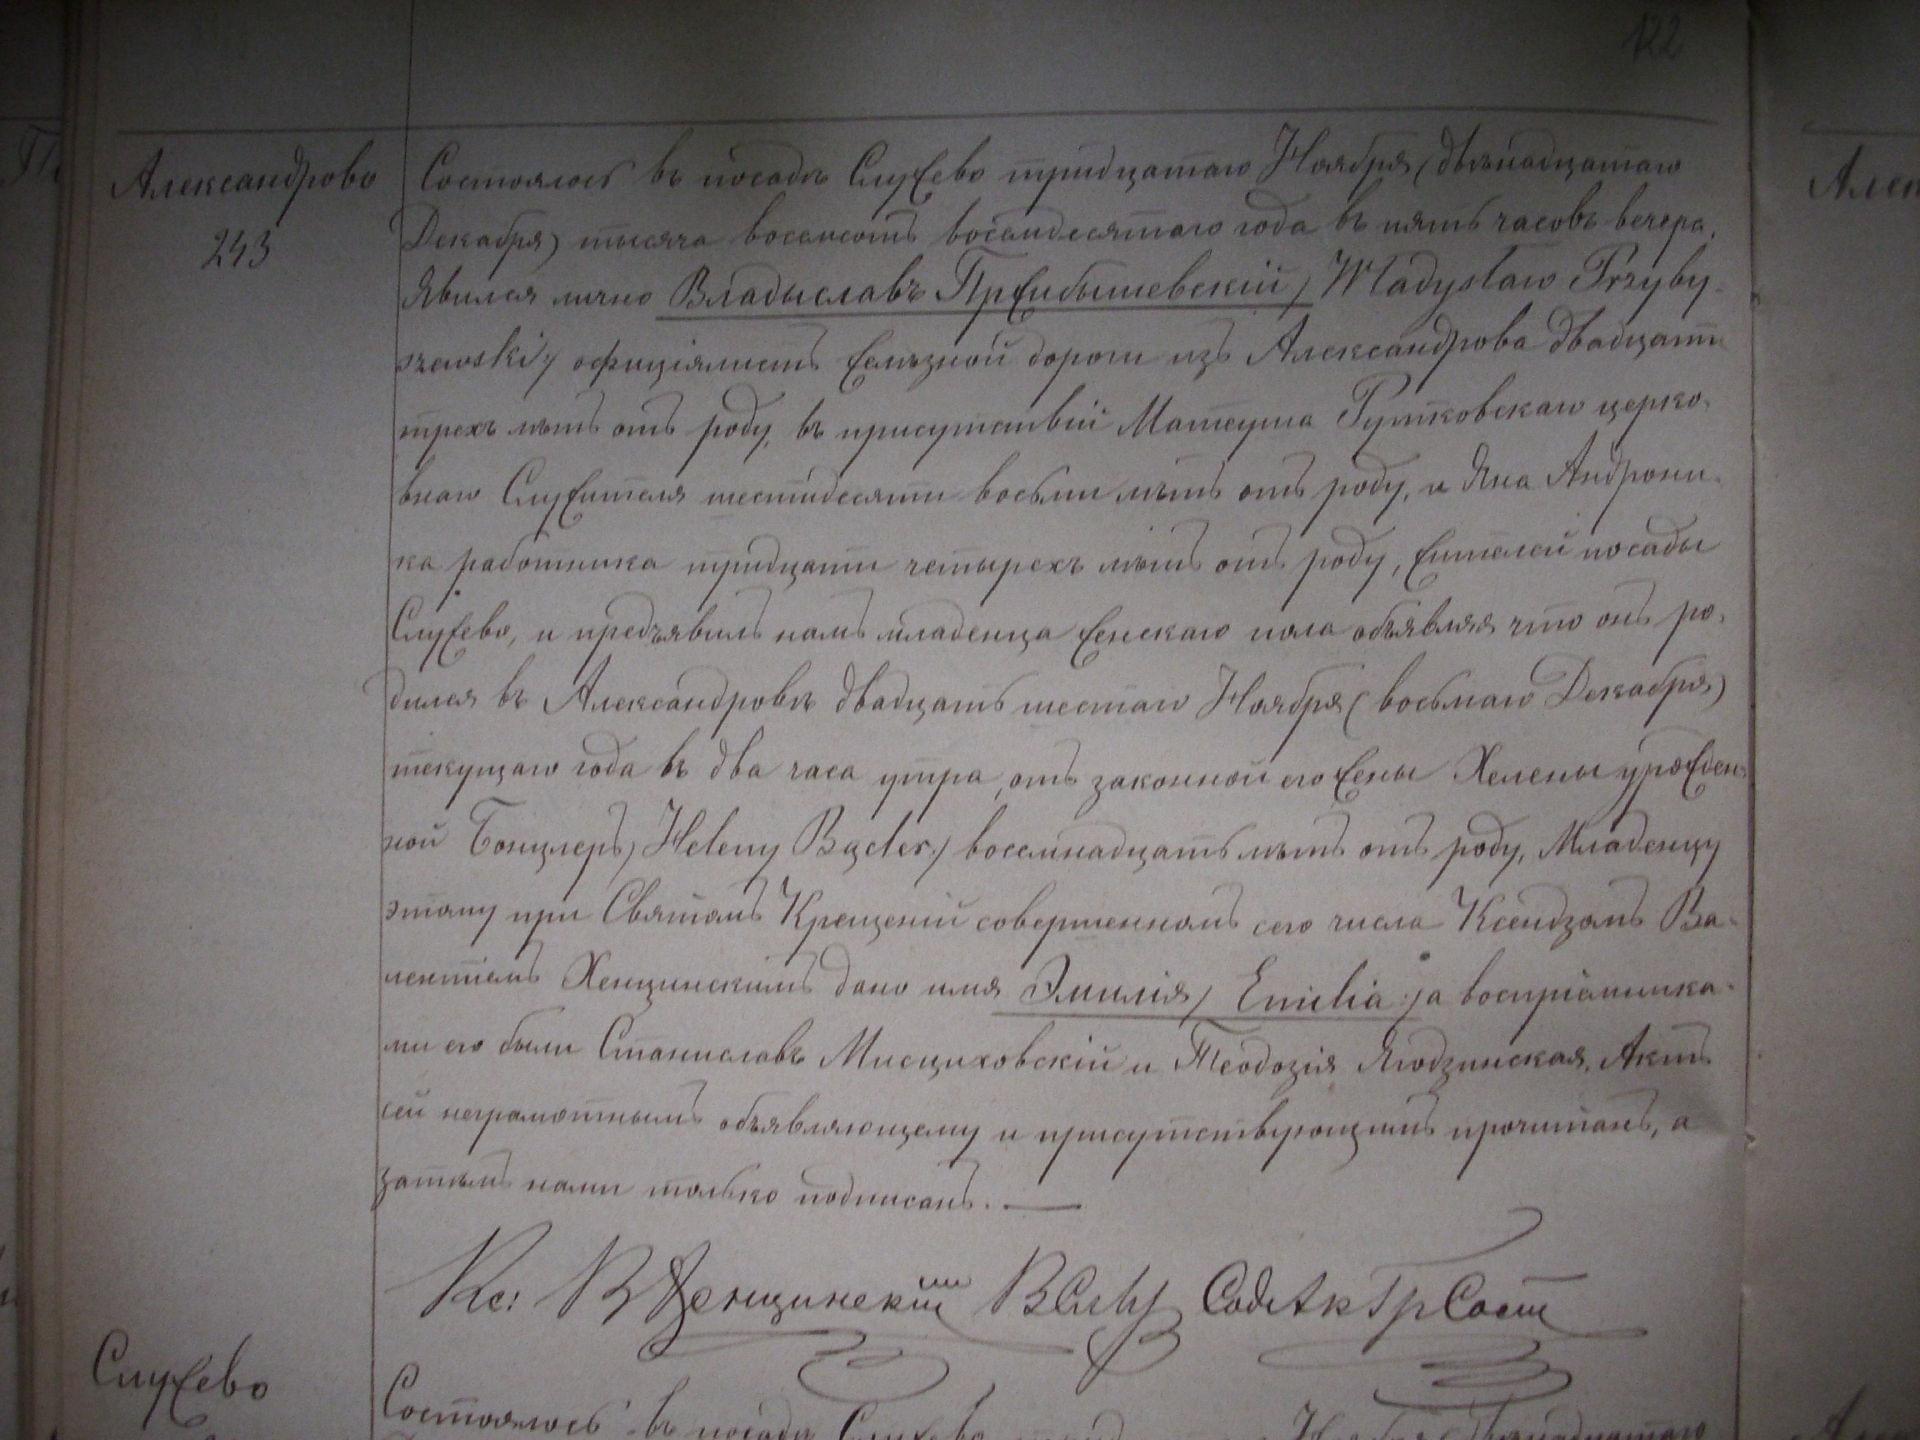 122
Александрово
243
Состоялось въ посадѣ Служево тридцатаго Ноября (двѣнадцатаго
Декабря) тысяча восемсотъ восемдесятаго года въ пять часовъ вечера.
Явился лично Владыславъ Пржибышевскій / Władysław Przyby-
szewski / офиціялистъ желѣзной дороги изъ Александрова двадцати
трехъ лѣтъ отъ роду, въ присутствіи Матеуша Рутковскаго церко-
внаго Служителя шестидесяти восьми лѣтъ отъ роду, и Яна Андрони-
ка работника тридцати четырехъ лѣтъ отъ роду, жителей посады
Служево, и предъявилъ намъ младенца женскаго пола объявляя что онъ ро-
дился въ Александровѣ двадцать шестаго Ноября (восьмаго Декабря)
текущаго года въ два часа утра, отъ законной его жены Хелены урожден-
ной Бонцлеръ / Heleny Bącler / восемнадцать лѣтъ отъ роду, Младенцу
этому при Святомъ Крещеніи совершенномъ сего числа Ксендзомъ Ва-
лентіемъ Хенцинскимъ дано имя Эмилія / Emilia / а воспріемника-
ми его были Станиславъ Мисциховскій и Теодозія Ягодзинская. Актъ
сей неграмотнымъ объявляющему и присутствующимъ прочитанъ, а
затѣмъ нами только подписанъ. —
Кс: В Хенцинскій Сод Ак Гр Сост
Служево
Состоялось въ посадѣ Служево Ноября
Алек